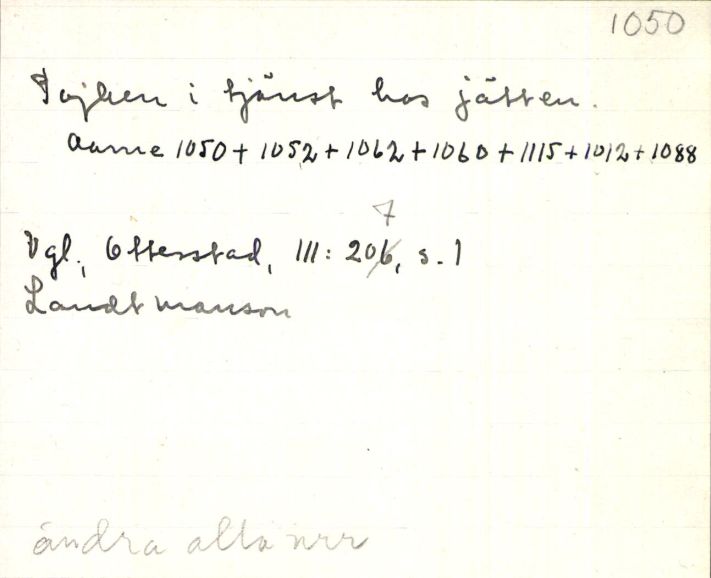 1050
Pojken i tjänst hos jätten.
Aarne 1050 + 1052 + 1062 + 1060 + 1115 + 1012 + 1088
7
Vgl., Otterstad, III: 206, s. 1
Landtmanson
ändra alla nrr